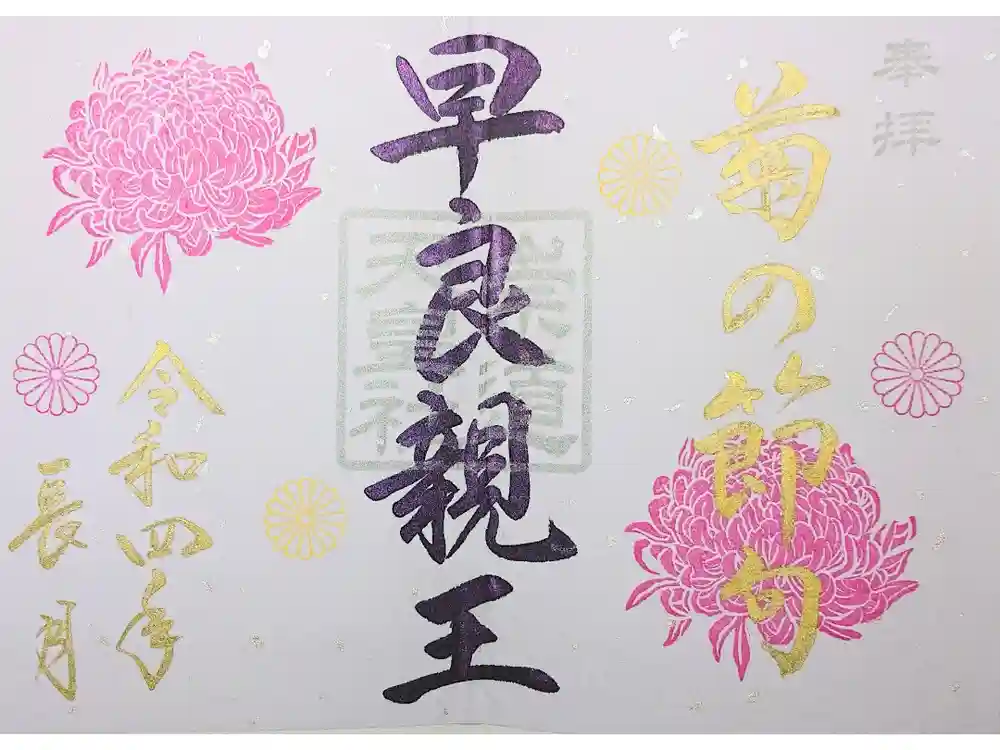 奉拝
菊の節句
早良親王
崇道
天皇社
令和四年
長月